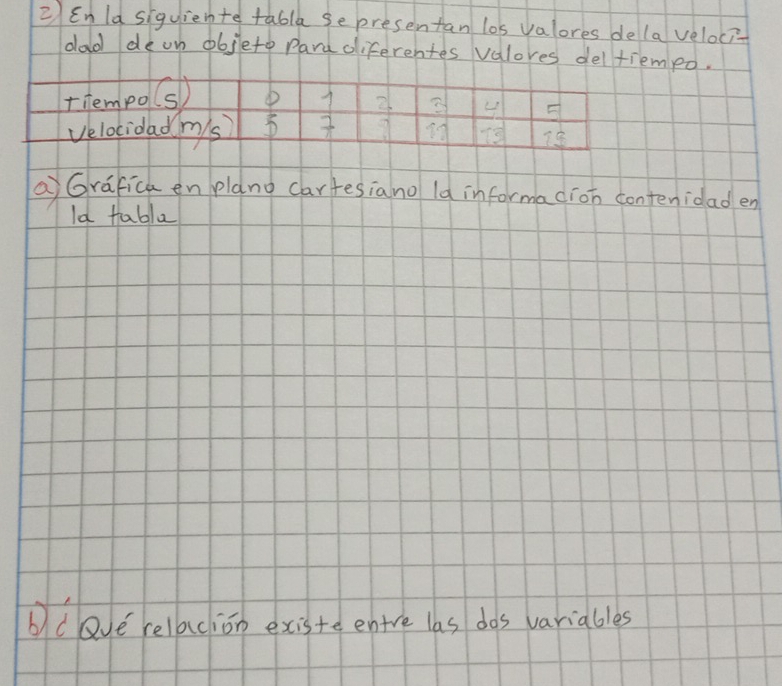 2) En la siguiente tabla se presentan los valores de la veloci-
dad de un objeto para diferentes valores del tiempo.
tiempo (s) 0 1 2 3 4 5
Velocidad (m/s) 5 7 11 13
a) Gráfica en plano cartesiano la información contenidad en
la tabla
b) ¿Qué relación existe entre las dos variables